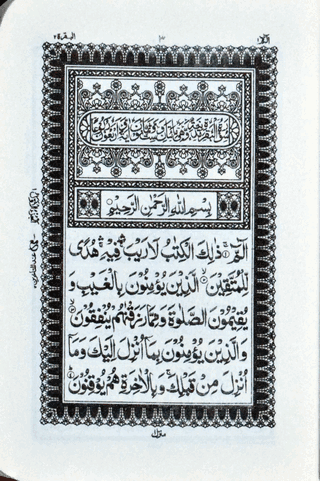 البقرة ٢
٣
الٓمّٓ ١
بِسْمِ اللّٰهِ الرَّحْمٰنِ الرَّحِيْمِ
الٓمّٓ ۚ ذٰلِكَ الْكِتٰبُ لَا رَيْبَ ۛ فِيْهِ ۛ هُدًى
لِّلْمُتَّقِيْنَ ۙ الَّذِيْنَ يُؤْمِنُوْنَ بِالْغَيْبِ وَ
يُقِيْمُوْنَ الصَّلٰوةَ وَمِمَّا رَزَقْنٰهُمْ يُنْفِقُوْنَ ۙ
وَالَّذِيْنَ يُؤْمِنُوْنَ بِمَآ اُنْزِلَ اِلَيْكَ وَمَآ
اُنْزِلَ مِنْ قَبْلِكَ ۚ وَبِالْاٰخِرَةِ هُمْ يُوْقِنُوْنَ ۗ
منزل